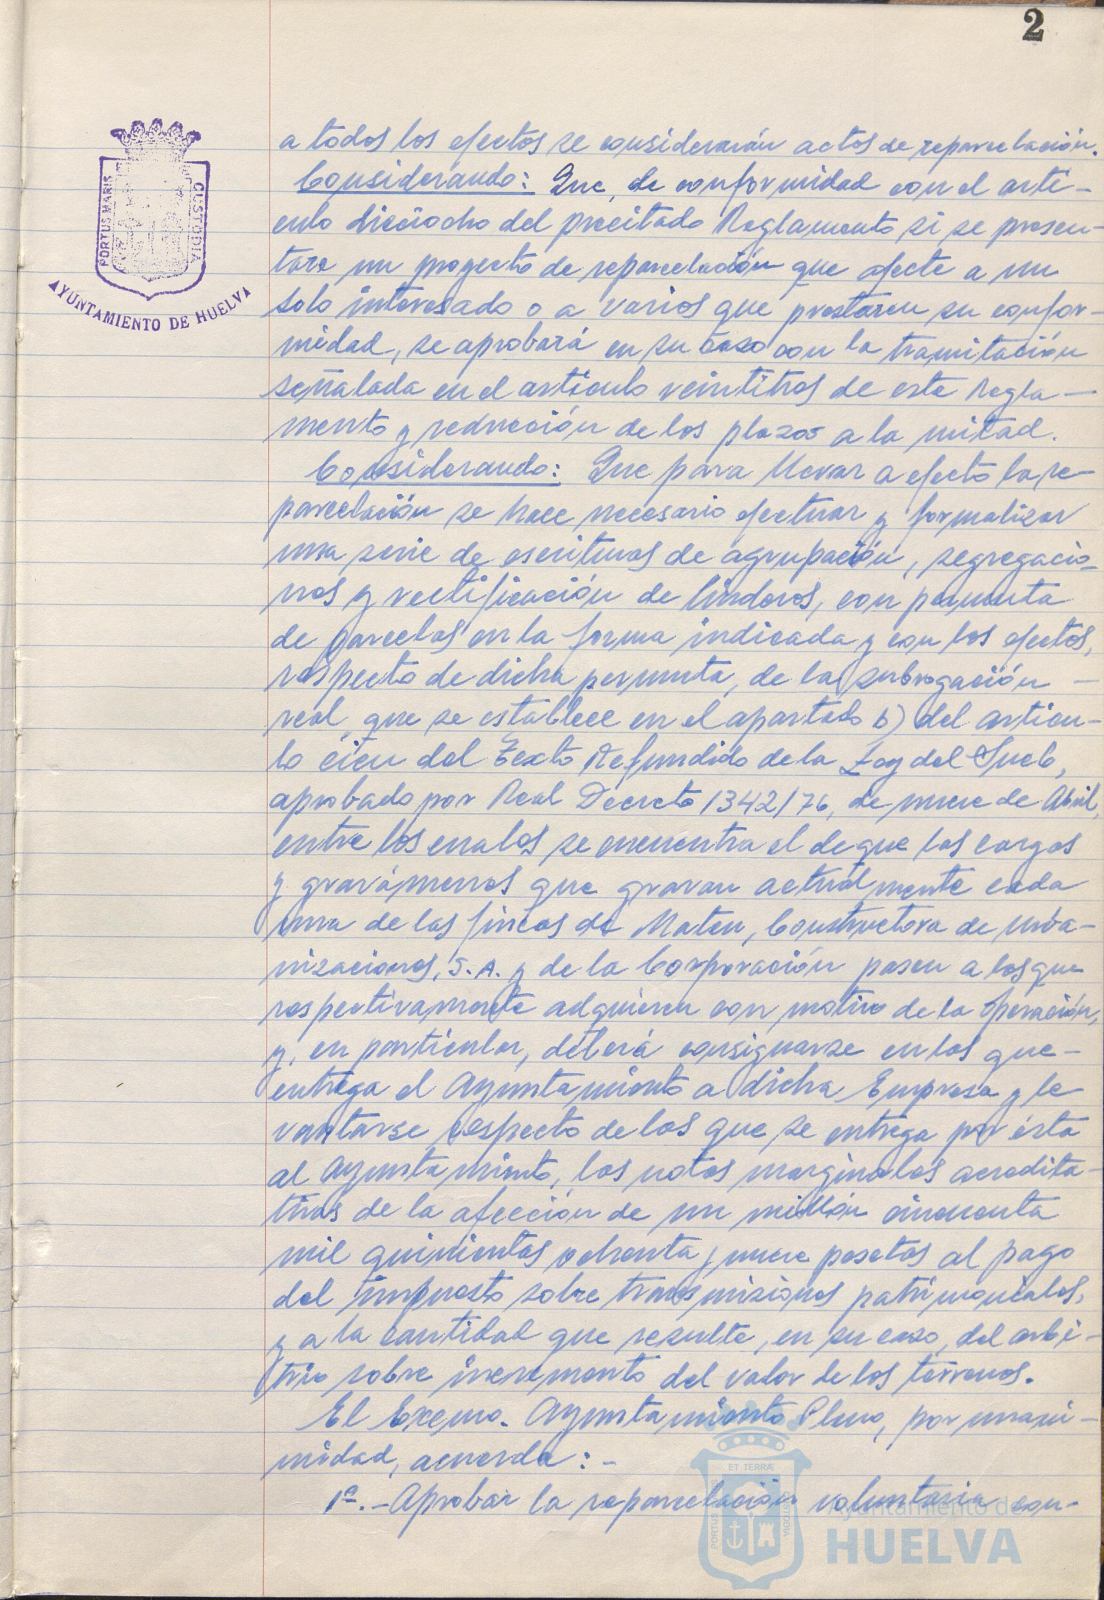 2
PORTUS MARIS
CUSTODIA
AYUNTAMIENTO DE HUELVA
a todos los efectos se considerarán actos de reparcelación.
Considerando: Que, de conformidad con el artí-
culo dieciocho del precitado Reglamento si se presen-
tare un proyecto de reparcelación que afecte a un
solo interesado o a varios que prestaren su confor-
midad, se aprobará en su caso con la tramitación
señalada en el artículo veintitres de este Regla-
mento y reducción de los plazos a la mitad.
Considerando: Que para llevar a efecto la re-
parcelación se hace necesario efectuar y formalizar
una serie de escrituras de agrupación, segregacio-
nes y rectificación de linderos, con permuta
de parcelas en la forma indicada y con los efectos,
respecto de dicha permuta, de la subrogación
real, que se establece en el apartado b) del artícu-
lo cien del Texto Refundido de la Ley del Suelo,
aprobado por Real Decreto 1342/76, de nueve de Abril,
entre los cuales se encuentra el de que las cargas
y gravámenes que gravan actualmente cada
una de las fincas de Maten, Constructora de urba-
nizaciones, S.A. y de la Corporación pasen a las que
respectivamente adquieren con motivo de la operación,
y, en particular, deberá consignarse en las que-
entrega el Ayuntamiento a dicha Empresa y le
vantarse respecto de las que se entrega por ésta
al Ayuntamiento, las notas marginales acredita-
tivas de la afección de un millón cincuenta
mil quinientas ochenta y nueve pesetas al pago
del impuesto sobre transmisiones patrimoniales,
y a la cantidad que resulte, en su caso, del arbi-
trio sobre incremento del valor de los terrenos.
El Excmo. Ayuntamiento Pleno, por unani-
midad, acuerda:-
1º.-Aprobar la reparcelación voluntaria con-
ET TERRÆ
PORTUS
CUSTODIA
Ayuntamiento de
HUELVA